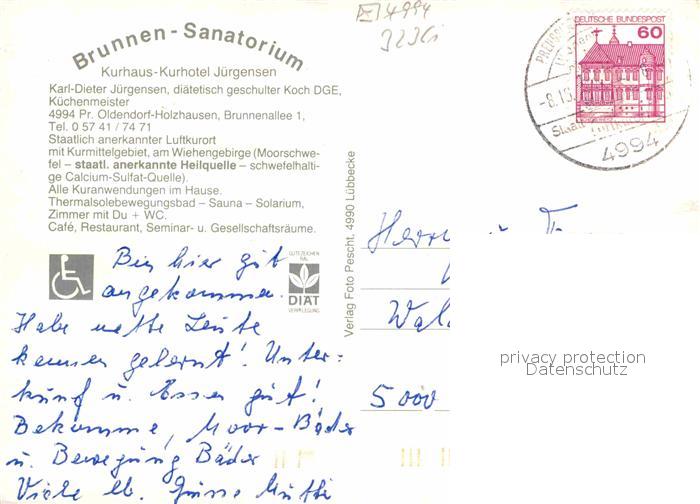 4994
323Ci
Brunnen-Sanatorium
Kurhaus-Kurhotel Jürgensen
Karl-Dieter Jürgensen, diätetisch geschulter Koch DGE,
Küchenmeister
4994 Pr. Oldendorf-Holzhausen, Brunnenallee 1,
Tel. 0 57 41 / 74 71
Staatlich anerkannter Luftkurort
mit Kurmittelgebiet, am Wiehengebirge (Moorschwe-
fel – staatl. anerkannte Heilquelle – schwefelhalti-
ge Calcium-Sulfat-Quelle).
Alle Kuranwendungen im Hause.
Thermalsolebewegungsbad – Sauna – Solarium,
Zimmer mit Du + WC.
Café, Restaurant, Seminar- u. Gesellschaftsräume.
GÜTEZEICHEN
RAL
DIÄT
VERPFLEGUNG
Bin hier gut
angekommen.
Habe nette Leute
kennen gelernt! Unter=
kunf u. Essen gut!
Bekomme, Moor-Bäder
u. Bewegung Bäder
Viele lb. Grüsse Mutti
Verlag Foto Pescht, 4990 Lübbecke
DEUTSCHE BUNDESPOST
60
-8.10
Staatl.
4994
Herrn u. Fr
Wal
5000
privacy protection
Datenschutz